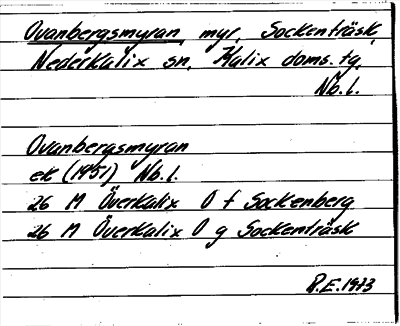 Ovanbergsmyran, myr, Sockenträsk,
Nederkalix sn, Kalix doms. tg,
Nb. l.
Ovanbergsmyran
ek (1951) Nb. l.
26 M Överkalix O f Sockenberg
26 M Överkalix O g Sockenträsk
R.E. 1973